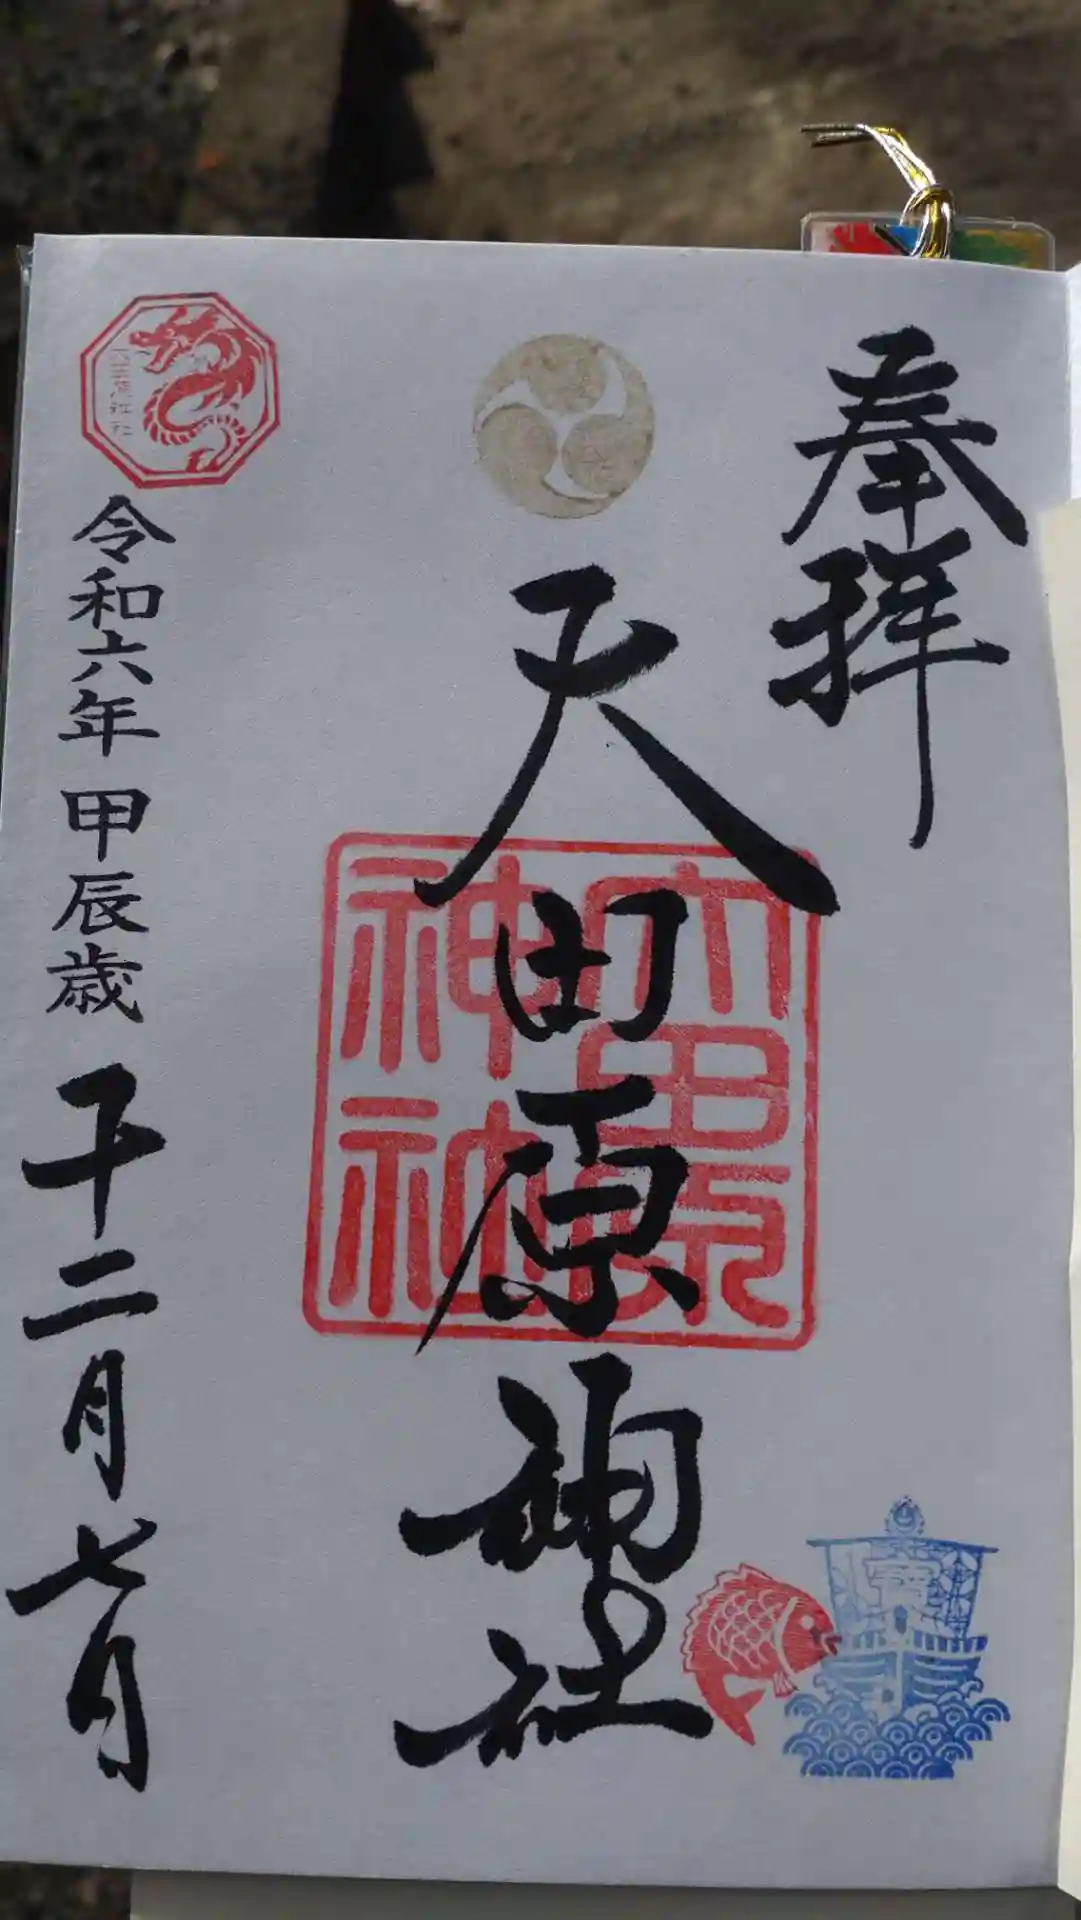 奉拝
大田原神社
大田原
神社
令和六年 甲辰歳 十二月七日
寶